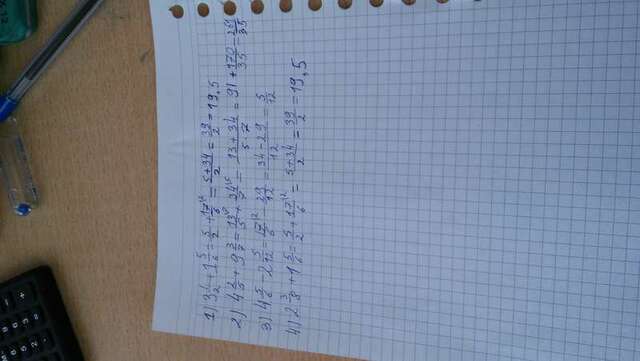 1) 3 1/2 + 1 5/6 = 5/2 + 17/6 = 5+34/2 = 39/2 = 19,5
2) 4 2/5 + 9 3/7 = 13/5 + 34/7 = 13+34/5·7 = 91+170/35 = 261/35
3) 4 5/6 - 2 5/12 = 17/6 - 29/12 = 34-29/12 = 5/12
4) 2 + 1 5/6 = 5/2 + 17/6 = 5+34/2 = 39/2 = 19,5